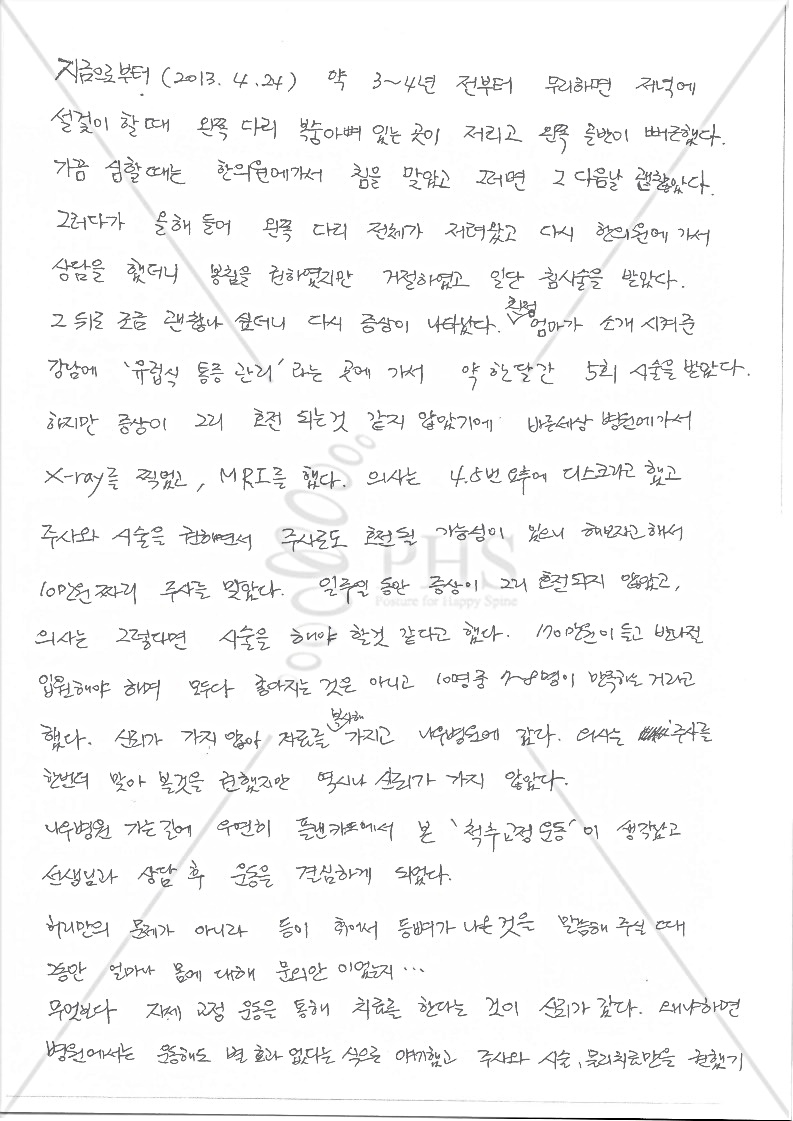 지금으로부터 (2013. 4. 24) 약 3~4년 전부터 무리하면 저녁에
설겆이 할때 왼쪽 다리 복숭아뼈 있는 곳이 저리고 왼쪽 골반이 뻐근했다.
가끔 심할때는 한의원에가서 침을 맞았고 그러면 그 다음날 괜찮았다.
그러다가 올해 들어 왼쪽 다리 전체가 저려왔고 다시 한의원에 가서
상담을 했더니 봉침을 권하였지만 거절하였고 일단 침시술을 받았다.
그 뒤로 조금 괜찮나 싶더니 다시 증상이 나타났다. 친정 엄마가 소개 시켜준
강남에 '유럽식 통증 관리'라는 곳에 가서 약 한달간 5회 시술을 받았다.
하지만 증상이 그리 호전 되는것 같지 않았기에 바른세상 병원에가서
X-ray를 찍었고, MRI를 했다. 의사는 4.5번 요추에 디스크라고 했고
주사와 시술을 권하면서 주사로도 호전될 가능성이 있으니 해보자고해서
10만원짜리 주사를 맞았다. 일주일 동안 증상이 그리 호전되지 않았고,
의사는 그렇다면 시술을 해야 할것 같다고 했다. 170만원이 들고 반나절
입원해야 하며 모두다 좋아지는 것은 아니고 10명중 7~8명이 만족하는 거라고
했다. 신뢰가 가지 않아 자료를 복사해 가지고 나우병원에 갔다. 의사는 주사를
한번더 맞아 볼것을 권했지만 역시나 신뢰가 가지 않았다.
나우병원 가는길에 우연히 플랜카드에서 본 '척추교정운동'이 생각났고
선생님과 상담 후 운동을 결심하게 되었다.
허리만의 문제가 아니라 등이 휘어서 등뼈가 나온 것을 말씀해 주실 때
그동안 얼마나 몸에 대해 문외안 이었는지...
무엇보다 자세 교정 운동을 통해 치료를 한다는 것이 신뢰가 갔다. 왜냐하면
병원에서는 운동해도 별 효과 없다는 식으로 얘기했고 주사와 시술, 물리치료만을 권했기
PHS
Posture for Happy Spine